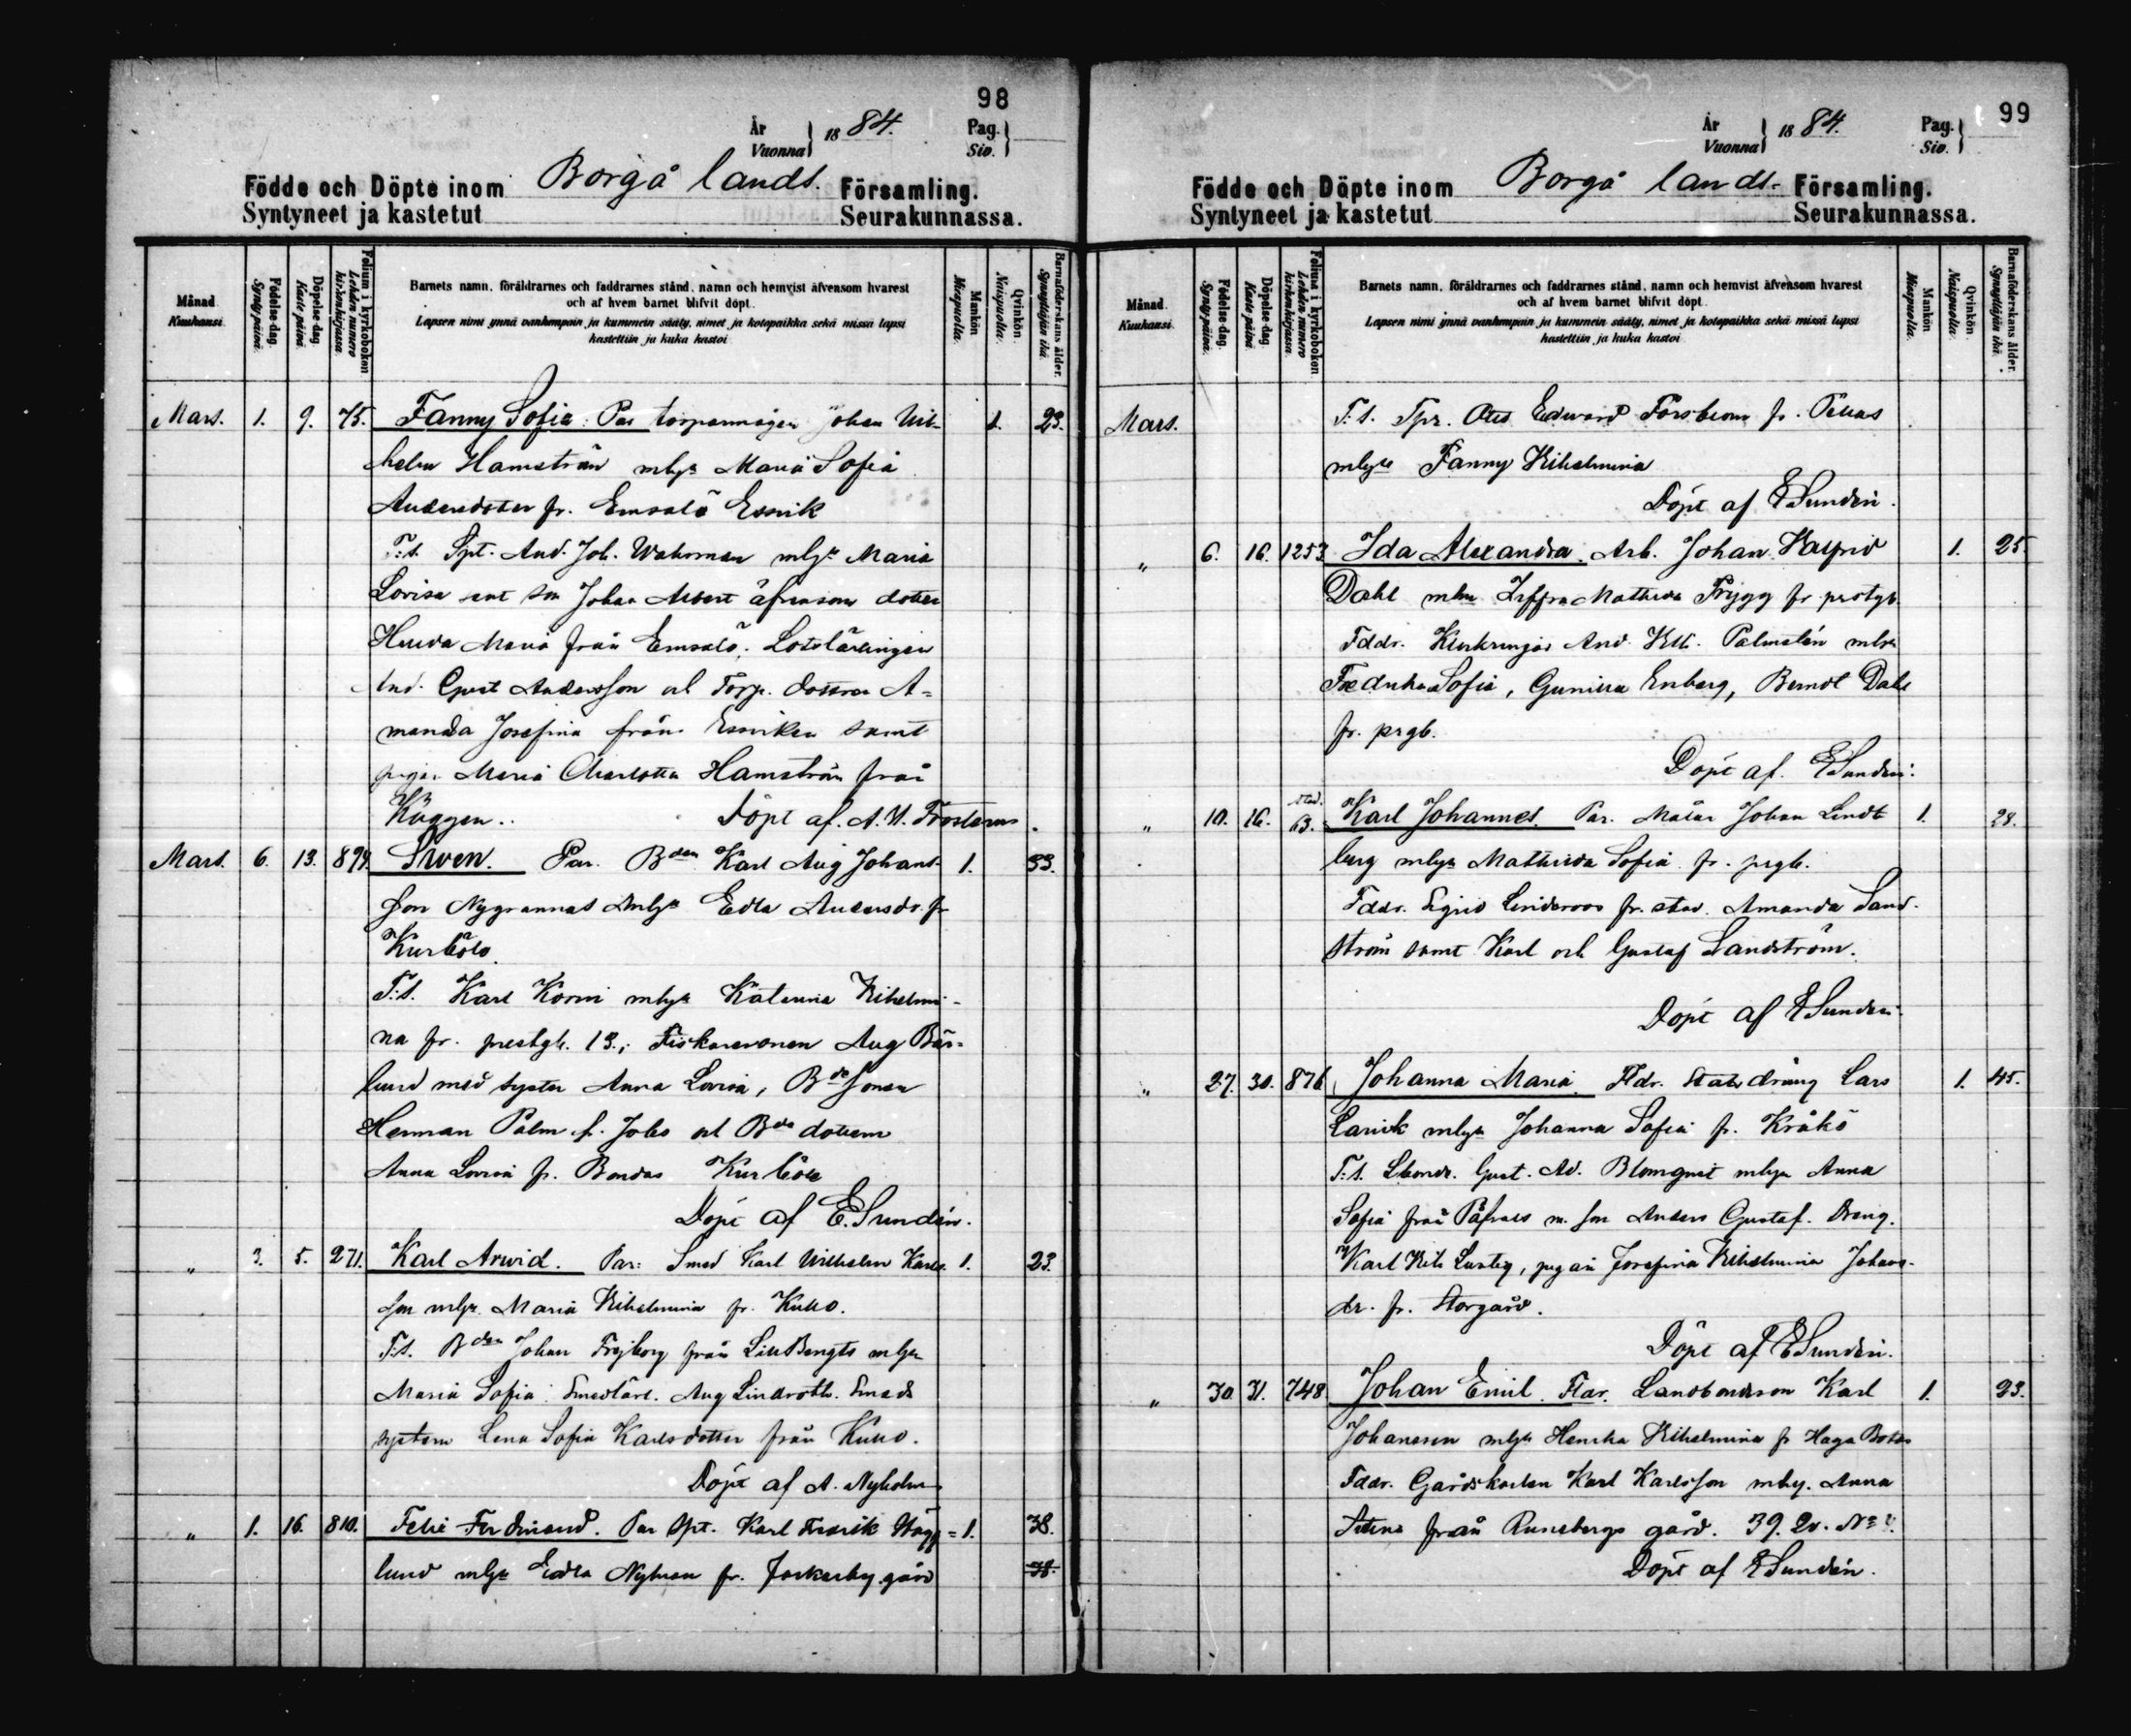 98
År
Vuonna
1884.
Pag.
Siv.
Födde och Döpte inom Borgå lands. Församling.
Syntyneet ja kastetut Seurakunnassa.
Månad.
Kuukausi.
Födelse-dag.
Synty-päivä.
Döpelse-dag.
Kaste-päivä.
Folium i kyrkoboken
Lehden numero kirkonkirjassa.
Barnets namn, föräldrarnes och faddrarnes stånd, namn och hemvist äfvensom hvarest
och af hvem barnet blifvit döpt.
Lapsen nimi ynnä vanhempain ja kummein sääty, nimet ja kotopaikka sekä missä lapsi
kastettiin ja kuka kastoi
Mankön
Miespuolia.
Qvinkön.
Naispuolia.
Barnaföderskans ålder.
Synnyttäjän ikä.
Mars. 1. 9. 75. Fanny Sofia: Par torparmågen Johan Wil- 1. 23.
helm Hamström mlga Maria Sofia
Andersdotter fr. Emsalö Essvik
T.s. Spt. And. Joh. Wahrman mlga Maria
Lovisa samt son Johan Albert äfvensom dotter
Hulda Maria från Emsalö; Lotslärlingen
And. Gust Andersson och Torp. dottren A=
manda Josefina från Essviken samt
pigan Maria Charlotta Hamström från
Kåggen.. Döpt af. A. W. Frosterus.
Mars. 6. 13. 899. Swen. Par. Bden Karl Aug Johans- 1. 33.
son Nygrannas mlga Edla Andersdr. fr
Kurböle.
T.s. Karl Korni mlga Katarina Wilhelmi-
na fr. prestgb. 13.; Fiskaresonen Aug Bär-
lund med syster Anna Lovisa, Bdesonen
Herman Palm f. Jobs och Bde dottern
Anna Lovisa fr. Bondas Kurböle
Döpt af E. Sundén.
" 3. 5. 271. Karl Arwid. Par: Smed Karl Wilhelm Karls- 1. 23.
son mlga Maria Wilhelmina fr. Kullo.
T.s. Bden Johan Frejborg från LillBengts mlga
Maria Sofia. Smedlärl. Aug Lindroth. Smeds
systern Lena Sofia Karlsdotter från Kullo.
Döpt af A. Nyholm
" 1. 16. 810. Felix Ferdinand. Par Spt. Karl Fredrik Hägg= 1. 38.
lund mlga Edla Nyman fr. Jackarby gård 38.
99
År
Vuonna
1884.
Pag.
Siv.
Födde och Döpte inom Borgå lands- Församling.
Syntyneet ja kastetut Seurakunnassa.
Månad.
Kuukausi.
Födelse-dag.
Synty-päivä.
Döpelse-dag.
Kaste-päivä.
Folium i kyrkoboken
Lehden numero kirkonkirjassa.
Barnets namn, föräldrarnes och faddrarnes stånd, namn och hemvist äfvensom hvarest
och af hvem barnet blifvit döpt.
Lapsen nimi ynnä vanhempain ja kummein sääty, nimet ja kotopaikka sekä missä lapsi
kastettiin ja kuka kastoi
Mankön
Miespuolia.
Qvinkön.
Naispuolia.
Barnaföderskans ålder.
Synnyttäjän ikä.
Mars. T.s. Tpr. Otto Edward Forsblom fr. Pellas
mlga Fanny Wilhelmina
Döpt af E Sundén.
" 6. 16. 1253 Ida Alexandra. Arb. Johan Walfrid 1. 25
Dahl mhu Mathilda Trygg fr prstgb.
Fddr. And. Wilh. Palmstén mlga
Fredrika Sofia, Gunilla Enberg, Berndt Dahl
fr. prgb.
Döpt af. E Sundén.
" 10. 16. stad. 13. Karl Johannes. Par. Målar Johan Lindt 1. 28.
berg mlga Mathilda Sofia fr. prgb.
Fddr. Sigrid Linderoos fr. stad. Amanda Sand-
ström samt Karl och Gustaf Sandström.
Döpt af E Sundén.
" 27. 30. 876. Johanna Maria. Fldr. Statdräng Lars 1. 45.
Larvik mlga Johanna Sofia fr. Kråkö
T.s. Lbonde. Gust. Ad. Blomqvist mlga Anna
Sofia från Påfvals m. son Anders Gustaf. Dreng.
Karl Wilh Lustig, pigan Josefina Wilhelmina Johans-
dr. fr. Storgård.
Döpt af E Sundén.
" 30. 31. 748. Johan Emil. Fldr. Landbondeson Karl 1. 23.
Johansson mlga Henrika Wilhelmina fr Haga Bobas
Fddr. Gårdskarlen Karl Karlsson mhg. Anna
Stina från Runebergs gård. 39. Qv. No
Döpt af E Sundén.